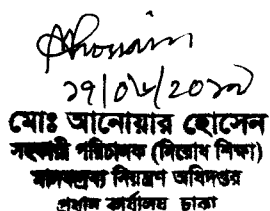 Hossain
১৭/০৮/২০১৭
মোঃ আনোয়ার হোসেন
সহকারী পরিচালক (নিরোধ শিক্ষা)
মাদকদ্রব্য নিয়ন্ত্রণ অধিদপ্তর
প্রধান কার্যালয় ঢাকা